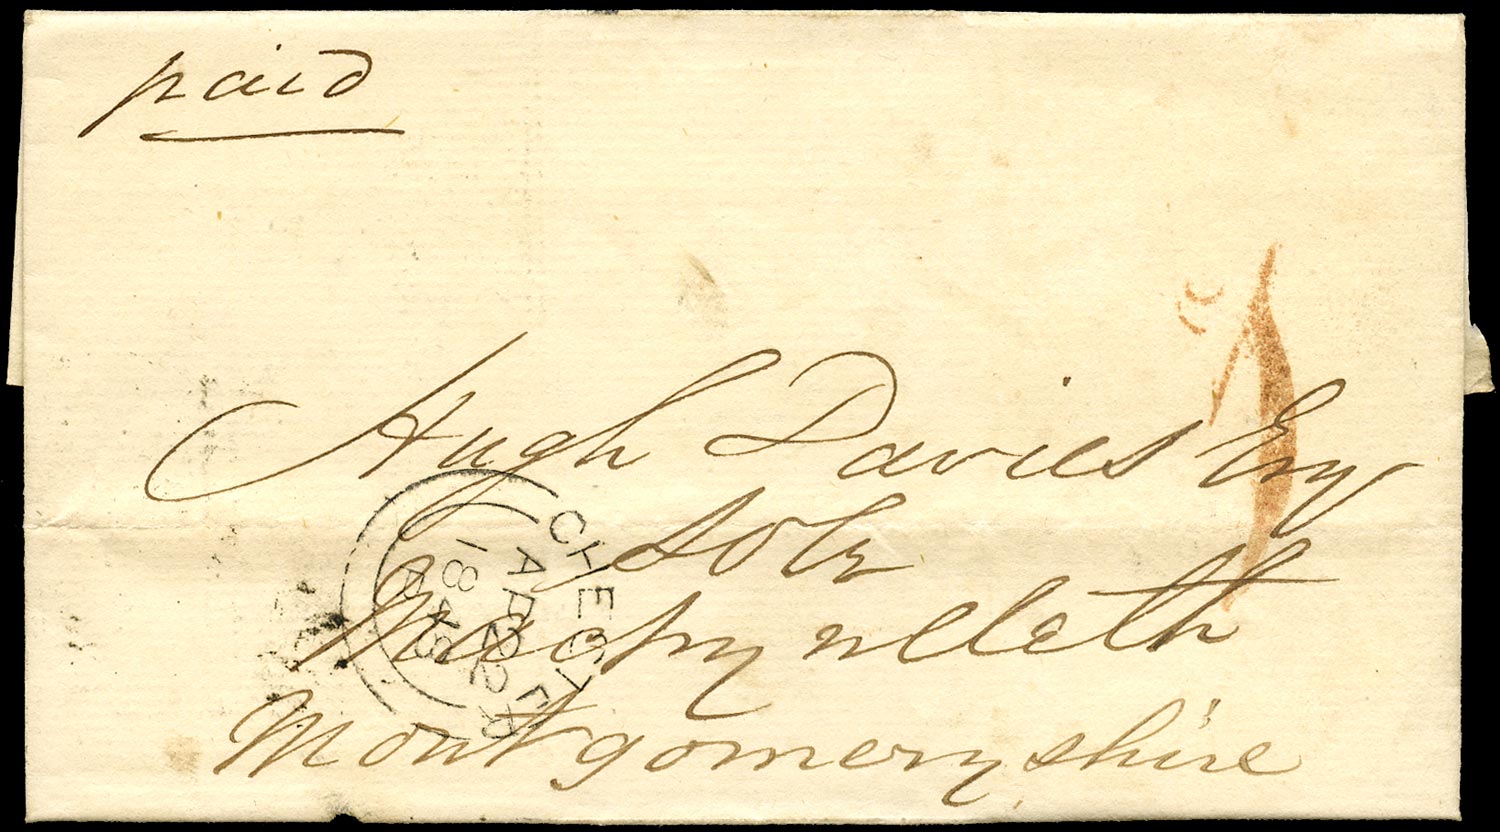 paid
Hugh Davies Esq
Solr
Machynlleth
Montgomeryshire
CHESTER
AP 22
1845
A
1